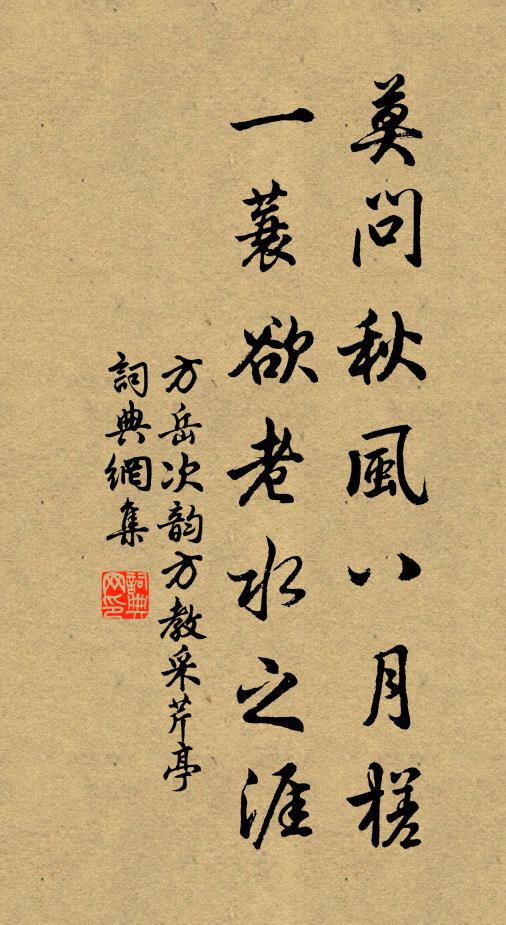 莫問秋風八月槎
一蓑欲老水之涯
方岳次韵方教采芹亭
詞典網集
詞典网印